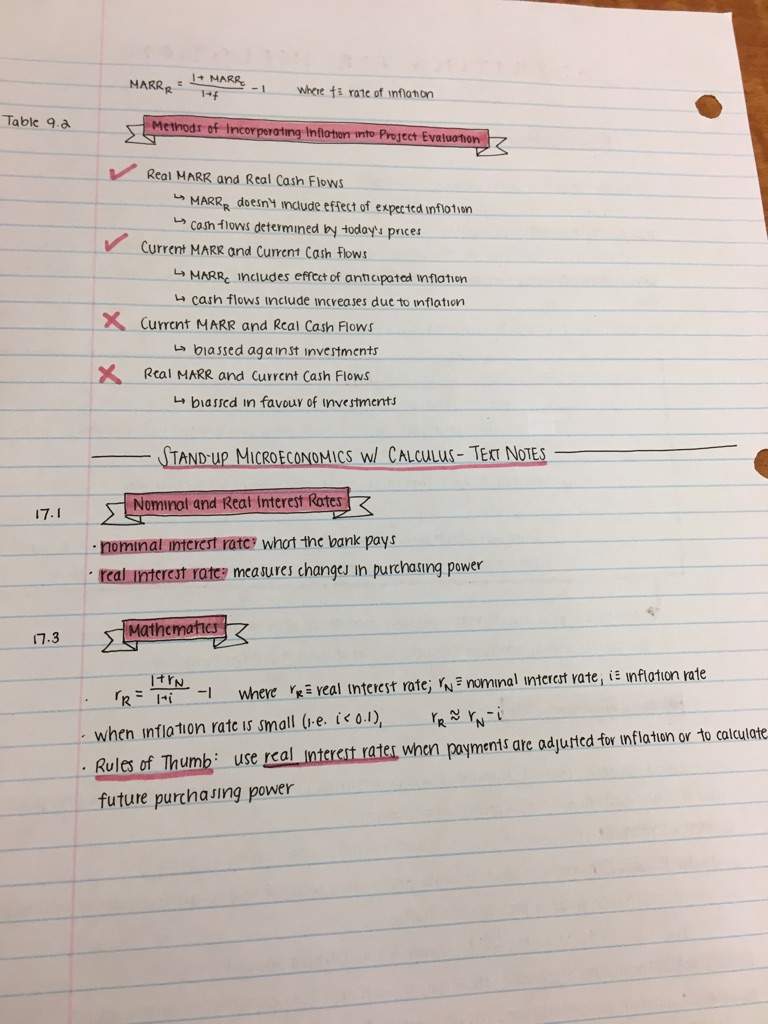 MARR_R = (1 + MARR_C)/(1+f) - 1 where f ≡ rate of inflation
Table 9.2
Methods of Incorporating Inflation into Project Evaluation
✓ Real MARR and Real Cash Flows
↳ MARR_R doesn't include effect of expected inflation
↳ cash flows determined by today's prices
✓ Current MARR and Current Cash flows
↳ MARR_C includes effect of anticipated inflation
↳ cash flows include increases due to inflation
✗ Current MARR and Real Cash Flows
↳ biassed against investments
✗ Real MARR and Current Cash Flows
↳ biassed in favour of investments
STAND-UP MICROECONOMICS W/ CALCULUS - TEXT NOTES
17.1 Nominal and Real Interest Rates
· nominal interest rate: what the bank pays
· real interest rate: measures changes in purchasing power
17.3 Mathematics
· r_R = (1+r_N)/(1+i) - 1 where r_R ≡ real interest rate; r_N ≡ nominal interest rate, i ≡ inflation rate
· when inflation rate is small (i.e. i < 0.1), r_R ≈ r_N - i
· Rules of Thumb: use real interest rates when payments are adjusted for inflation or to calculate
future purchasing power